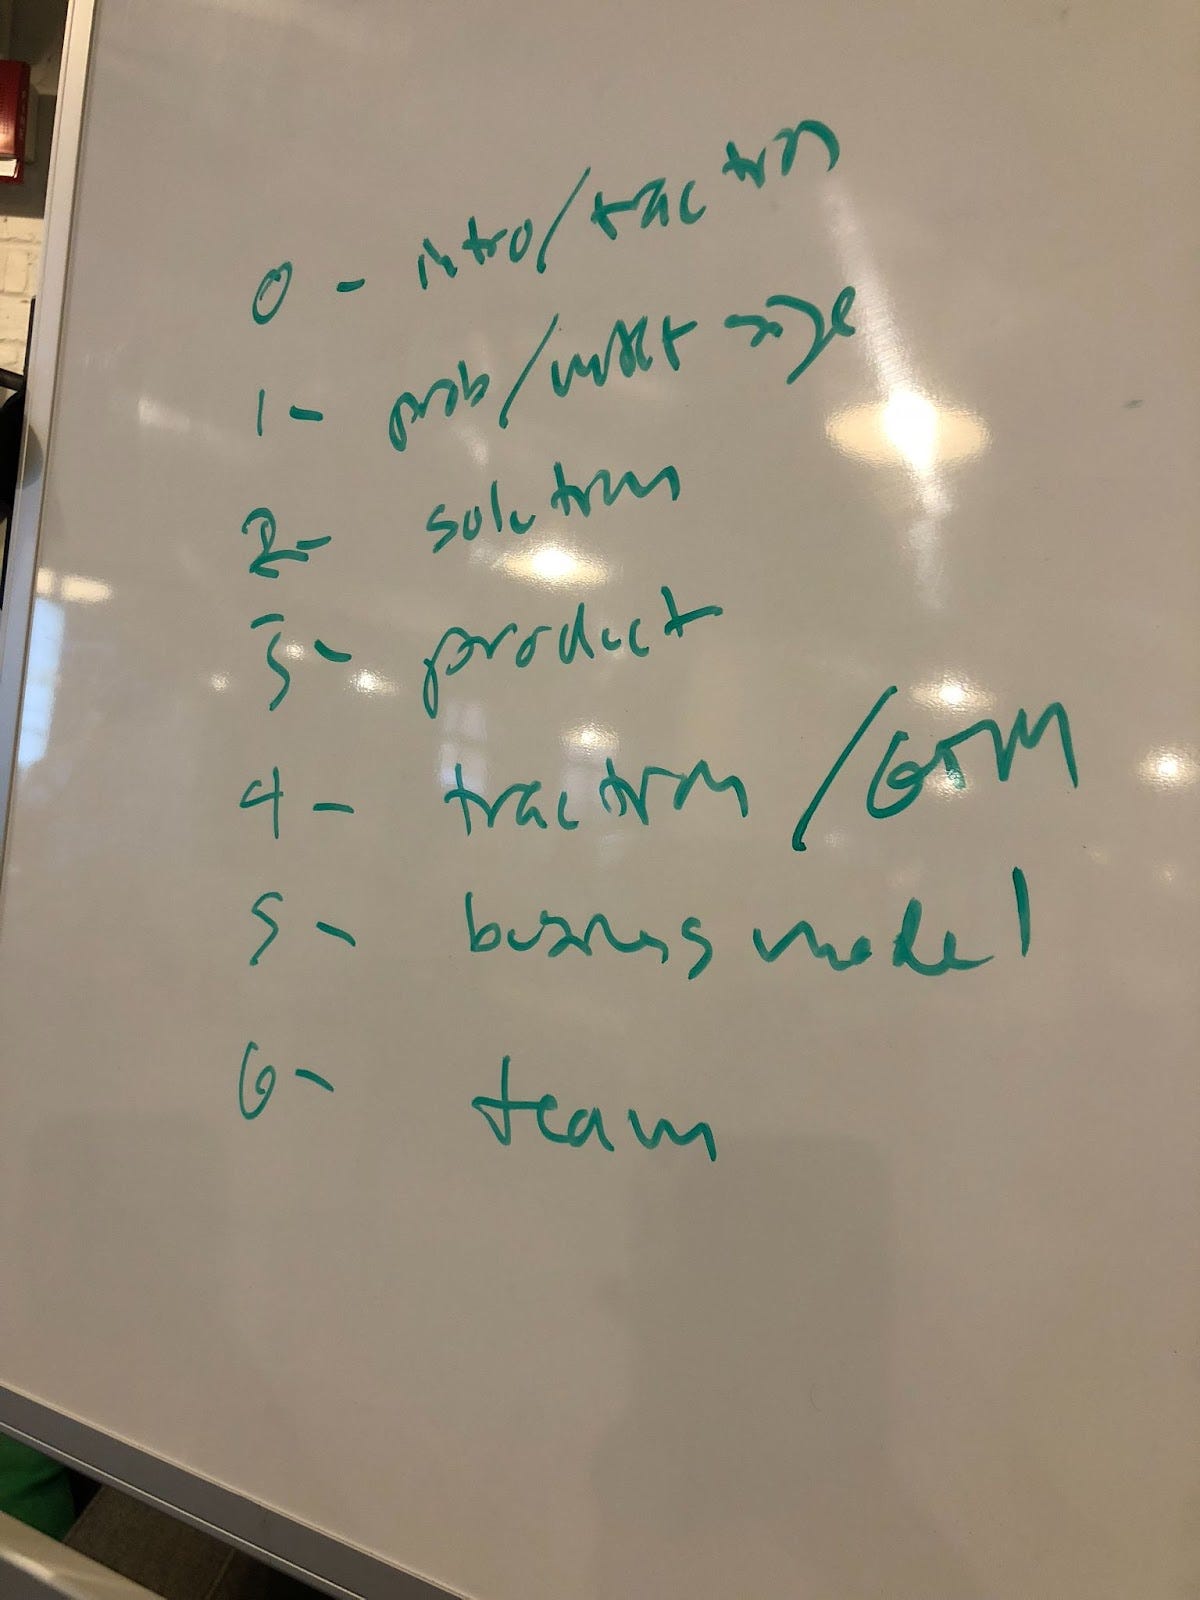 0 - intro/traction
1 - prob/mrkt size
2 - solution
3 - product
4 - traction/GTM
5 - business model
6 - team